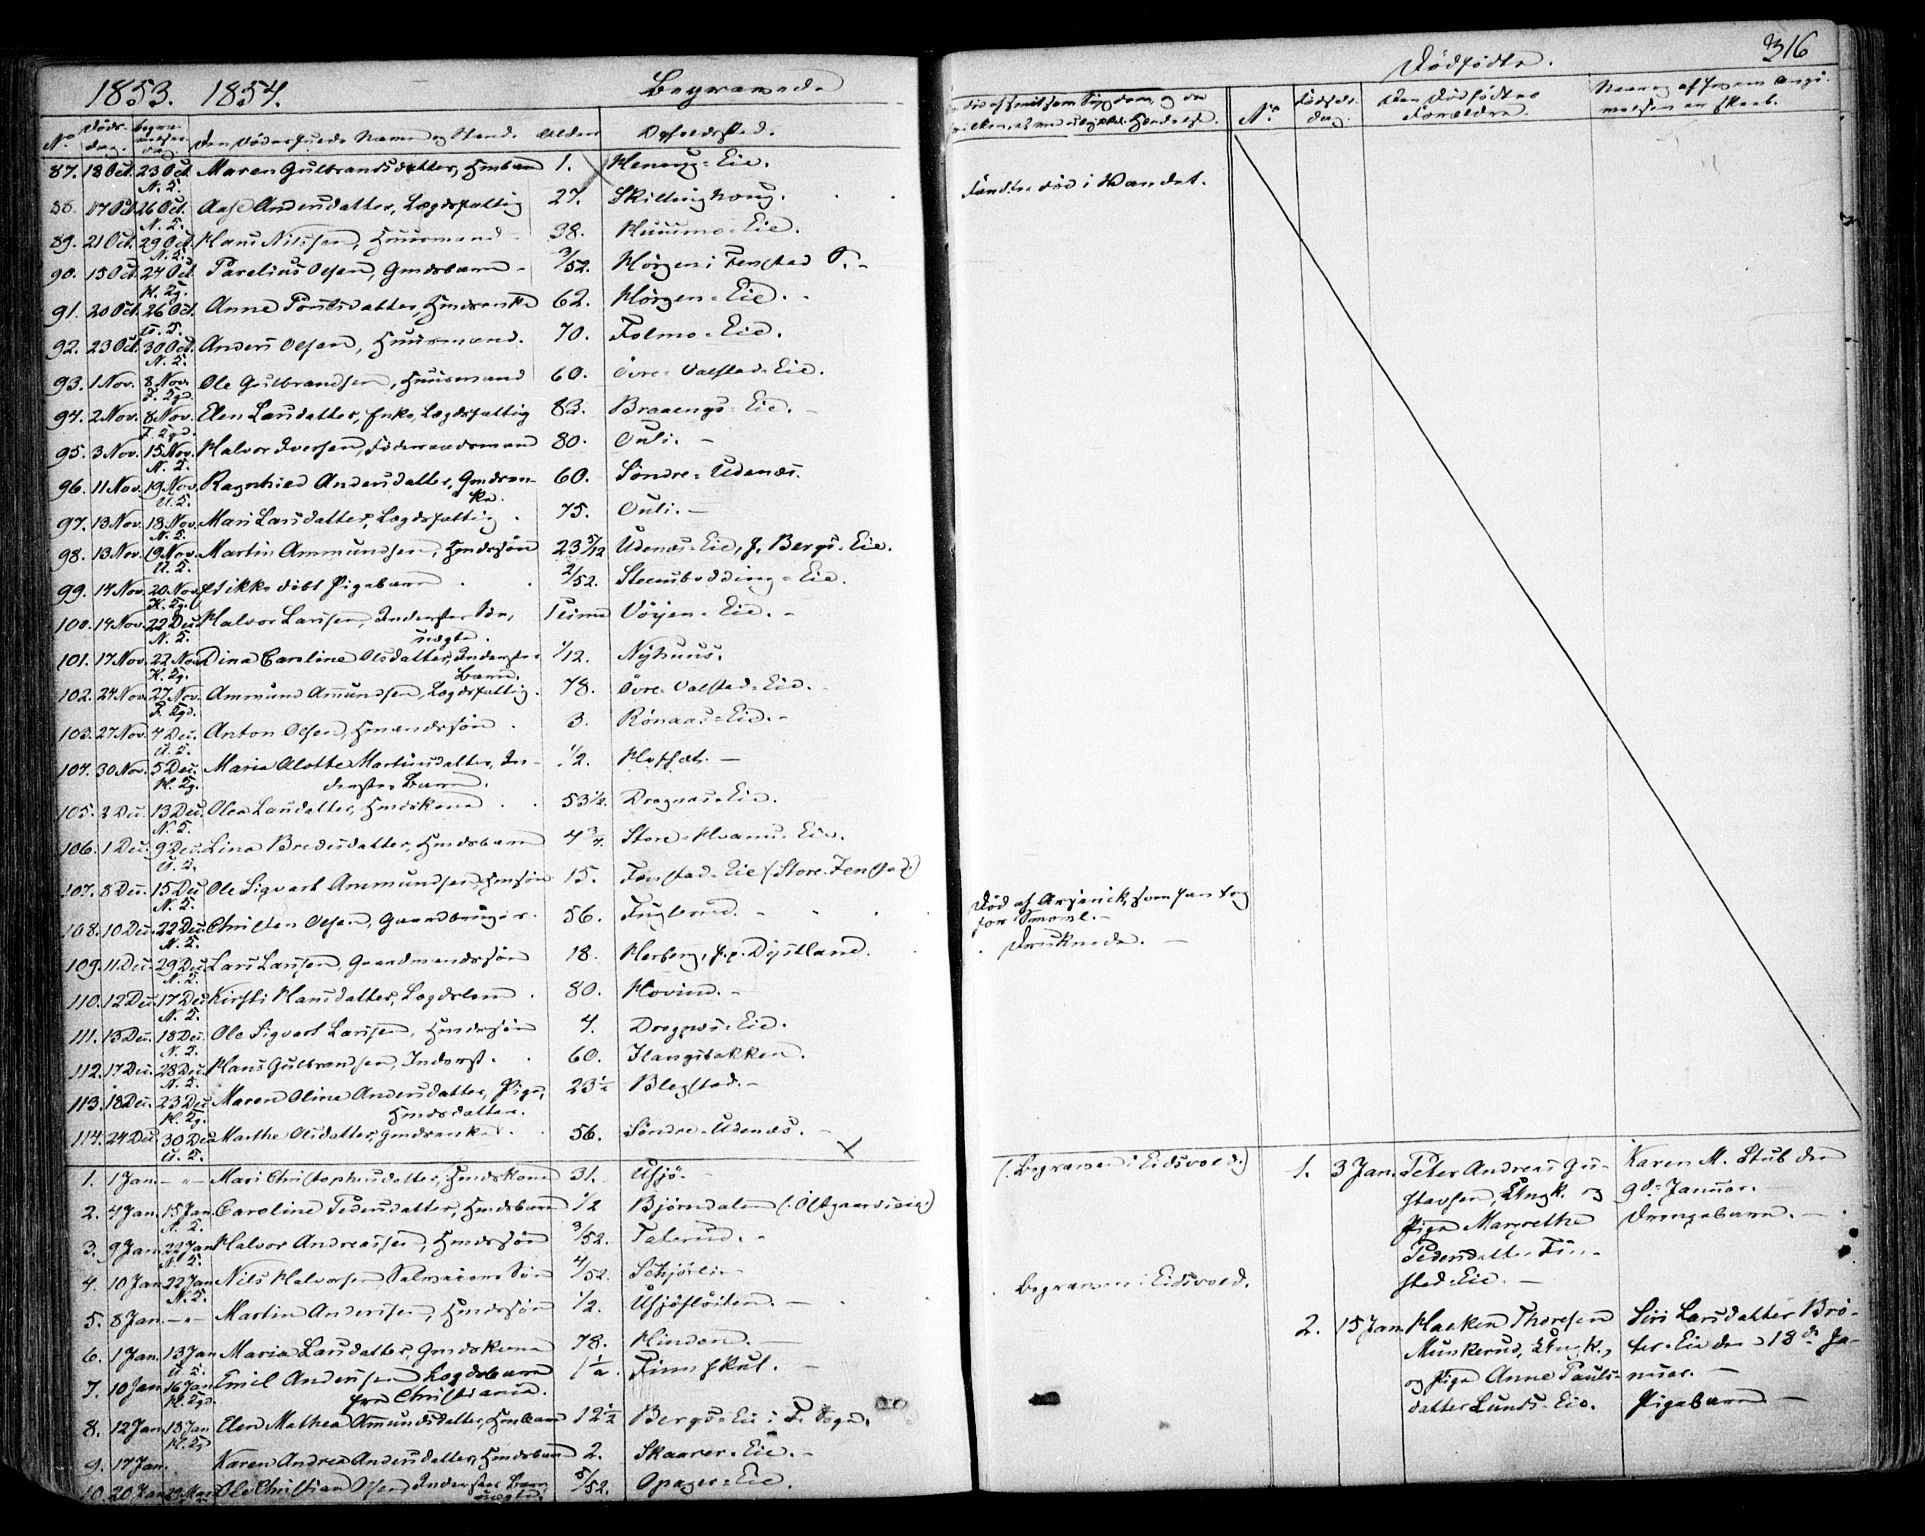 1853. 1854.
Begravede
No
Døds-dag.
Den Dødes fulde Navn og Stand.
Alder
Opholdssted.
87. 18 Oct. 23 Oct. Maren Gulbrandsdatter, Hmdbarn 1. Henæug-Eie.
N. S.
88. 17 Oct. 26 Oct. Aase Andersdatter, Lægdsfattig 27. Skillinghoug.
N. S.
89. 21 Oct. 29 Oct. Hans Nilssen, Huusmand 38. Huusmo-Eie.
N. S.
90. 15 Oct. 24 Oct. Parelius Olsen, Gmdsbarn 3/52. Hørgen i Fenstad S.
91. 20 Oct. 26 Oct. Anne Poulsdatter, Hmdsenke 62. Hørgen-Eie.
92. 23 Oct. 30 Oct. Anders Olsen, Huusmand. 70. Folmo-Eie.
N. S.
93. 1 Nov. 8 Nov. Ole Gulbrandsen, Huusmand 60. Övre-Valstad-Eie.
94. 2 Nov. 8 Nov. Elen Larsdatter, Enke, Lægdsfattig 83. Braaengs-Eie.
95. 3 Nov. 15 Nov. Halvor Iversen, Föderaadsmand 80. Ouli.
N. S.
96. 11 Nov. 19 Nov. Ragnhild Andersdatter, Gmdsen-ke. 60. Söndre-Udenæs.
U. S.
97. 13 Nov. 18 Nov. Mari Larsdatter, Lægdsfattig. 75. Ouli.
N. S.
98. 13 Nov. 19 Nov. Martin Ammundsen, Hmdssön 23 5/12 Udenæs-Eie, f. Bergs-Eie.
U. S.
99. 14 Nov. 20 Nov. Et ikke döbt Pigebarn 2/52. Steensbødding-Eie.
100. 14 Nov. 22 Dec. Halvor Larsen, Inderster Sön, uægte. 1 Time Vöyen-Eie.
N. S.
101. 17 Nov. 22 Nov. Dina Caroline Olsdatter, Inderster Barn. 1/12. Nyhuus.
102. 24 Nov. 27 Nov. Ammund Amundsen, Lægdsfattig. 78. Övre-Valstad-Eie.
103. 27 Nov. 4 Dec. Anton Olsen, Hmandssön 3. Rönaas-Eie.
U. S.
104. 30 Nov. 5 Dec. Maria Alette Martinsdatter, In-derster Barn. 1/2. Hoffset.
105. 3 Dec. 13 Dec. Olea Larsdatter, Hmdskone 53 1/2. Dragnæs-Eie.
N. S.
106. 1 Dec. 9 Dec. Lina Bredesdatter, Hmdsbarn 4 3/4. Store-Hvams-Eie.
U. S.
107. 8 Dec. 15 Dec. Ole Sigvart Ammundsen, Hmsön 15. Fenstad-Eie (Store-Fenstad)
N. S.
108. 10 Dec. 22 Dec. Christen Olsen, Gaardbruger. 56. Fuglerud.
N. S.
109. 11 Dec. 29 Dec. Lars Larsen, Gaardmandssön 18. Herberg, f. p. Dystland.
N. S.
110. 12 Dec. 17 Dec. Kirsti Hansdatter, Lægdslem. 80. Hovind.
N. S.
111. 13 Dec. 18 Dec. Ole Sigvart Larsen, Hmdssön 4. Dragnæs-Eie.
N. S.
112. 17 Dec. 28 Dec. Hans Gulbrandsen, Inderst. 60. Ilangsbakken.
N. S.
113. 18 Dec. 23 Dec. Maren Oline Andersdatter, Pige, Hmdsdatter. 23 1/2 Blegstad.
114. 24 Dec. 30 Dec. Marthe Olsdatter, Gmdsenke. 56. Söndre-Udenæs.
U. S.
1. 1 Jan. Mari Christophersdatter, Hmdskone 31. Usjö.
2. 4 Jan. 15 Jan. Caroline Pedersdatter, Hmdsbarn 1/2 Björndalen (: Östgaardseie:)
N. S.
3. 9 Jan. 22 Jan. Halvor Andreassen, Hmdssön 3/52. Talerud.
N. S.
4. 10 Jan. 22 Jan. Nils Halvorsen Selveiers Sön 4/52. Schjörli.
N. S.
5. 8 Jan. Martin Andersen, Hmdssön 1/2. Usjöfloiten.
6. 1 Jan. 13 Jan. Maria Larsdatter, Gmdskone 78. Hinden.
U. S.
7. 10 Jan. 16 Jan. Emil Andersen Lægdsbarn fra Christiania. 1 1/2. Finnskut.
8. 12 Jan. 18 Jan. Elen Mathea Amundsdatter, Hmbarn 12 1/2 Bergs-Eie i F. Sogn.
9. 17 Jan. Karen Andrea Andersdatter, Hmdsbarn 2. Skaarer-Eie.
10. 20 Jan. Ole Christian Olsen Inderster Barn uægte. 5/52. Opager-Eie.
316
Dødfødte.
No.
Fødsels-dag.
Den Dødfødtes Forældre.
Naar og af hvem anmeldelsen er skeet.
Fundet död i Vandet.
Död af Arsenik, som han tog
for Smørre.
Druknede.
(: Begraven i Eidsvold:)
Begraven i Eidsvold.
1. 3 Jan. Peter Andreas Gu-
stavsen, Ungk. og
Pige Margrethe
Pedersdatter Fin-
stad-Eie.
Karen M. Stub den
9de Januar.
Drengebarn.
2. 15 Jan. Haaken Thoresen
Munkerud, Ungk.,
og Pige Anne Pauls-
datter Lunds-Eie.
Siri Larsdatter Brö-
ter-Eie den 18de Ja-
nuar.
Pigebarn